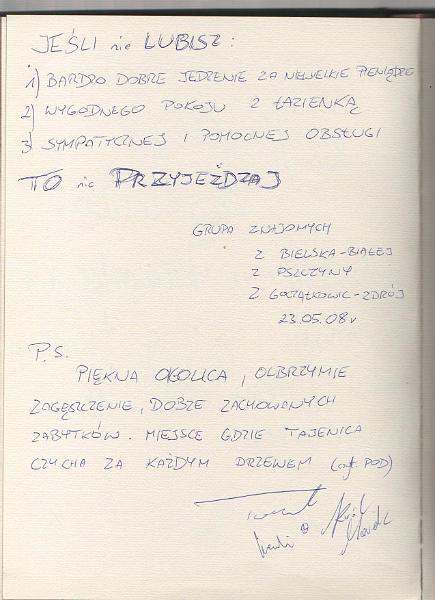 JEŚLI nie LUBISZ:
1) BARDZO DOBRE JEDZENIE ZA NIEWIELKIE PIENIĄDZE
2) WYGODNEGO POKOJU Z ŁAZIENKĄ
3) SYMPATYCZNEJ I POMOCNEJ OBSŁUGI
TO nie PRZYJEŻDŻAJ
GRUPA ZNAJOMYCH
Z BIELSKA-BIAŁEJ
Z PSZCZYNY
Z GOCZAŁKOWIC-ZDRÓJ
23.05.08r
P.S.
PIĘKNA OKOLICA, OLBRZYMIE
ZAGĘSZCZENIE, DOBRZE ZACHOWANYCH
ZABYTKÓW. MIEJSCE GDZIE TAJENICA
CZYCHA ZA KAŻDYM DRZEWEM (cyt. POD)